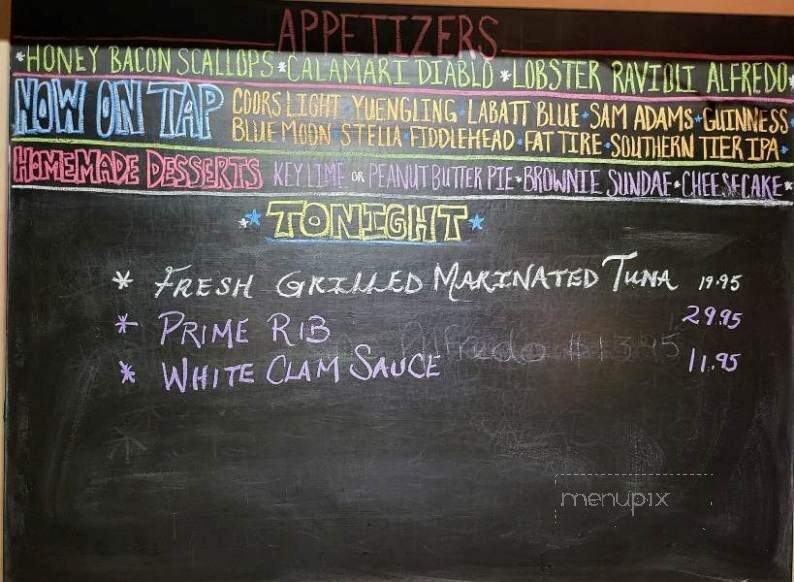 APPETIZERS
*HONEY BACON SCALLOPS*CALAMARI DIABLO*LOBSTER RAVIOLI ALFREDO*
NOW ON TAP
COORS LIGHT YUENGLING LABATT BLUE SAM ADAMS GUINNESS
BLUE MOON STELLA FIDDLEHEAD FAT TIRE SOUTHERN TIER IPA
HOMEMADE DESSERTS KEY LIME OR PEANUT BUTTER PIE BROWNIE SUNDAE CHEESECAKE
*TONIGHT*
* FRESH GRILLED MARINATED TUNA 19.95
* PRIME RIB 29.95
Alfredo $13.95
* WHITE CLAM SAUCE 11.95
menupix